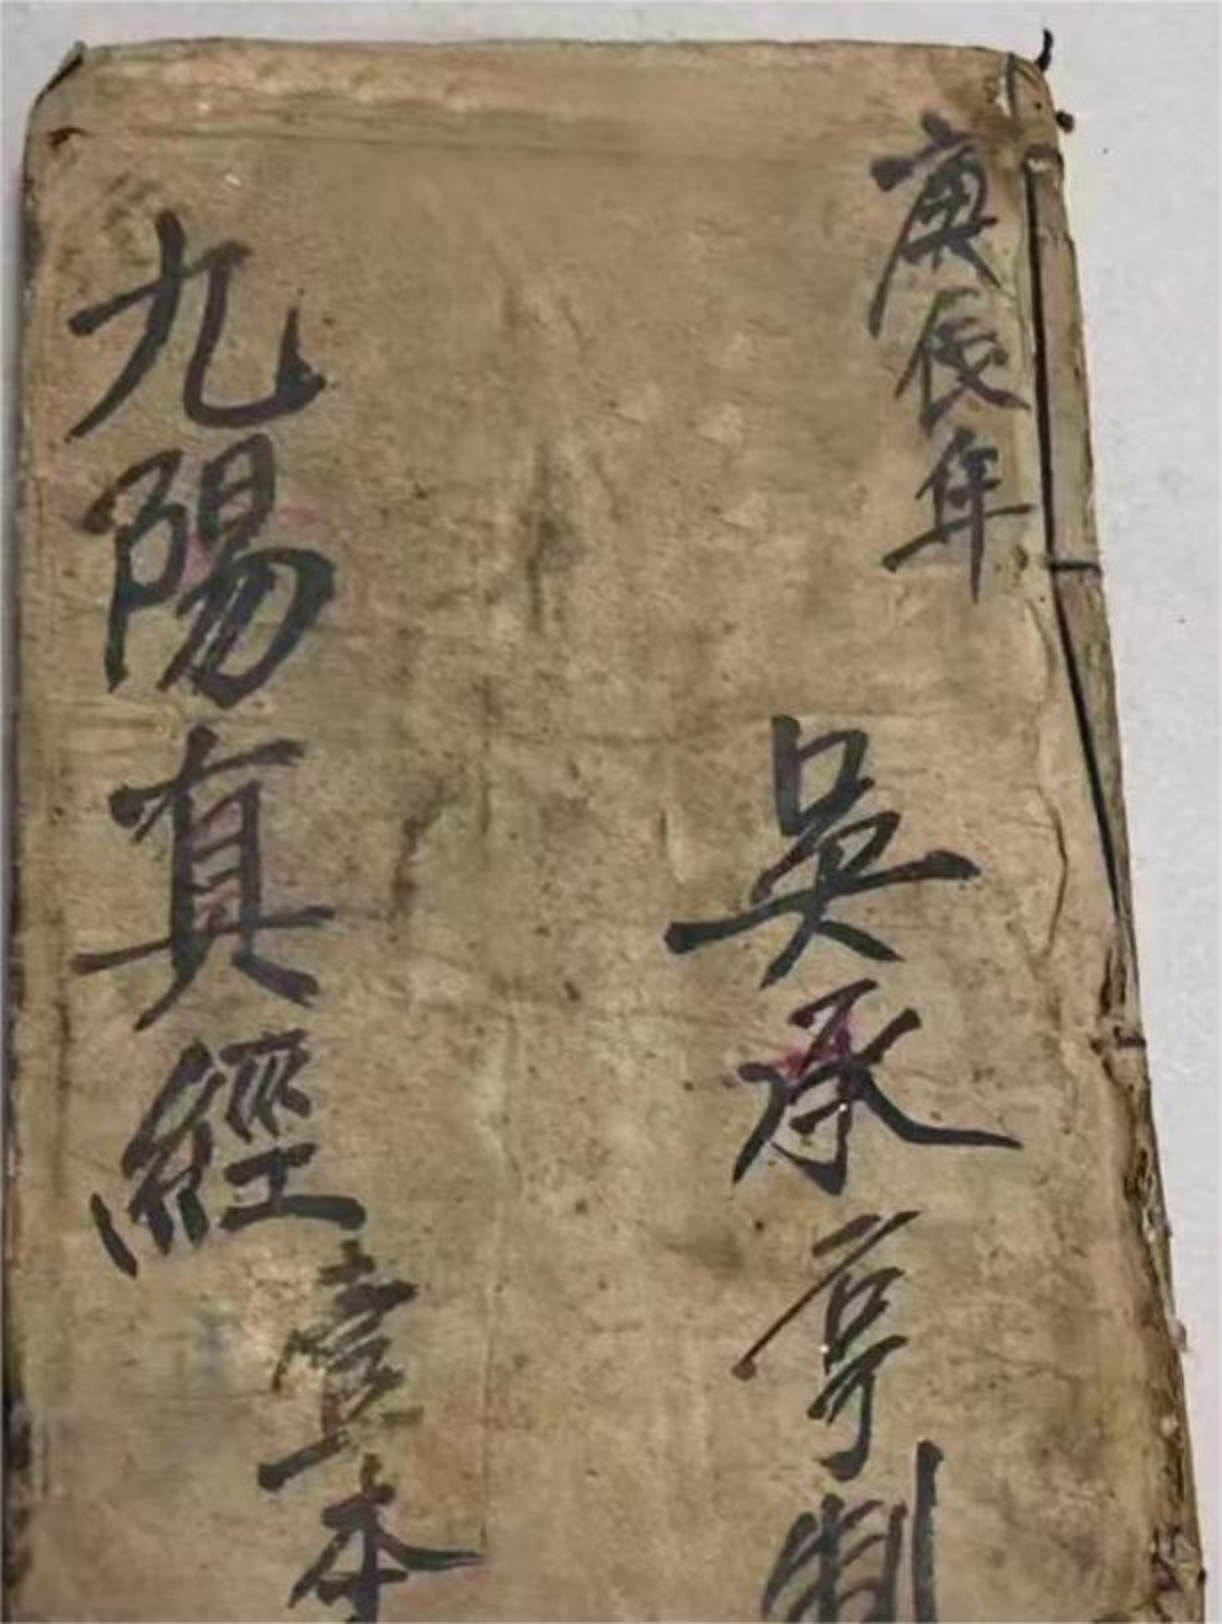 庚辰年
吳承亨制
九陽真經壹本